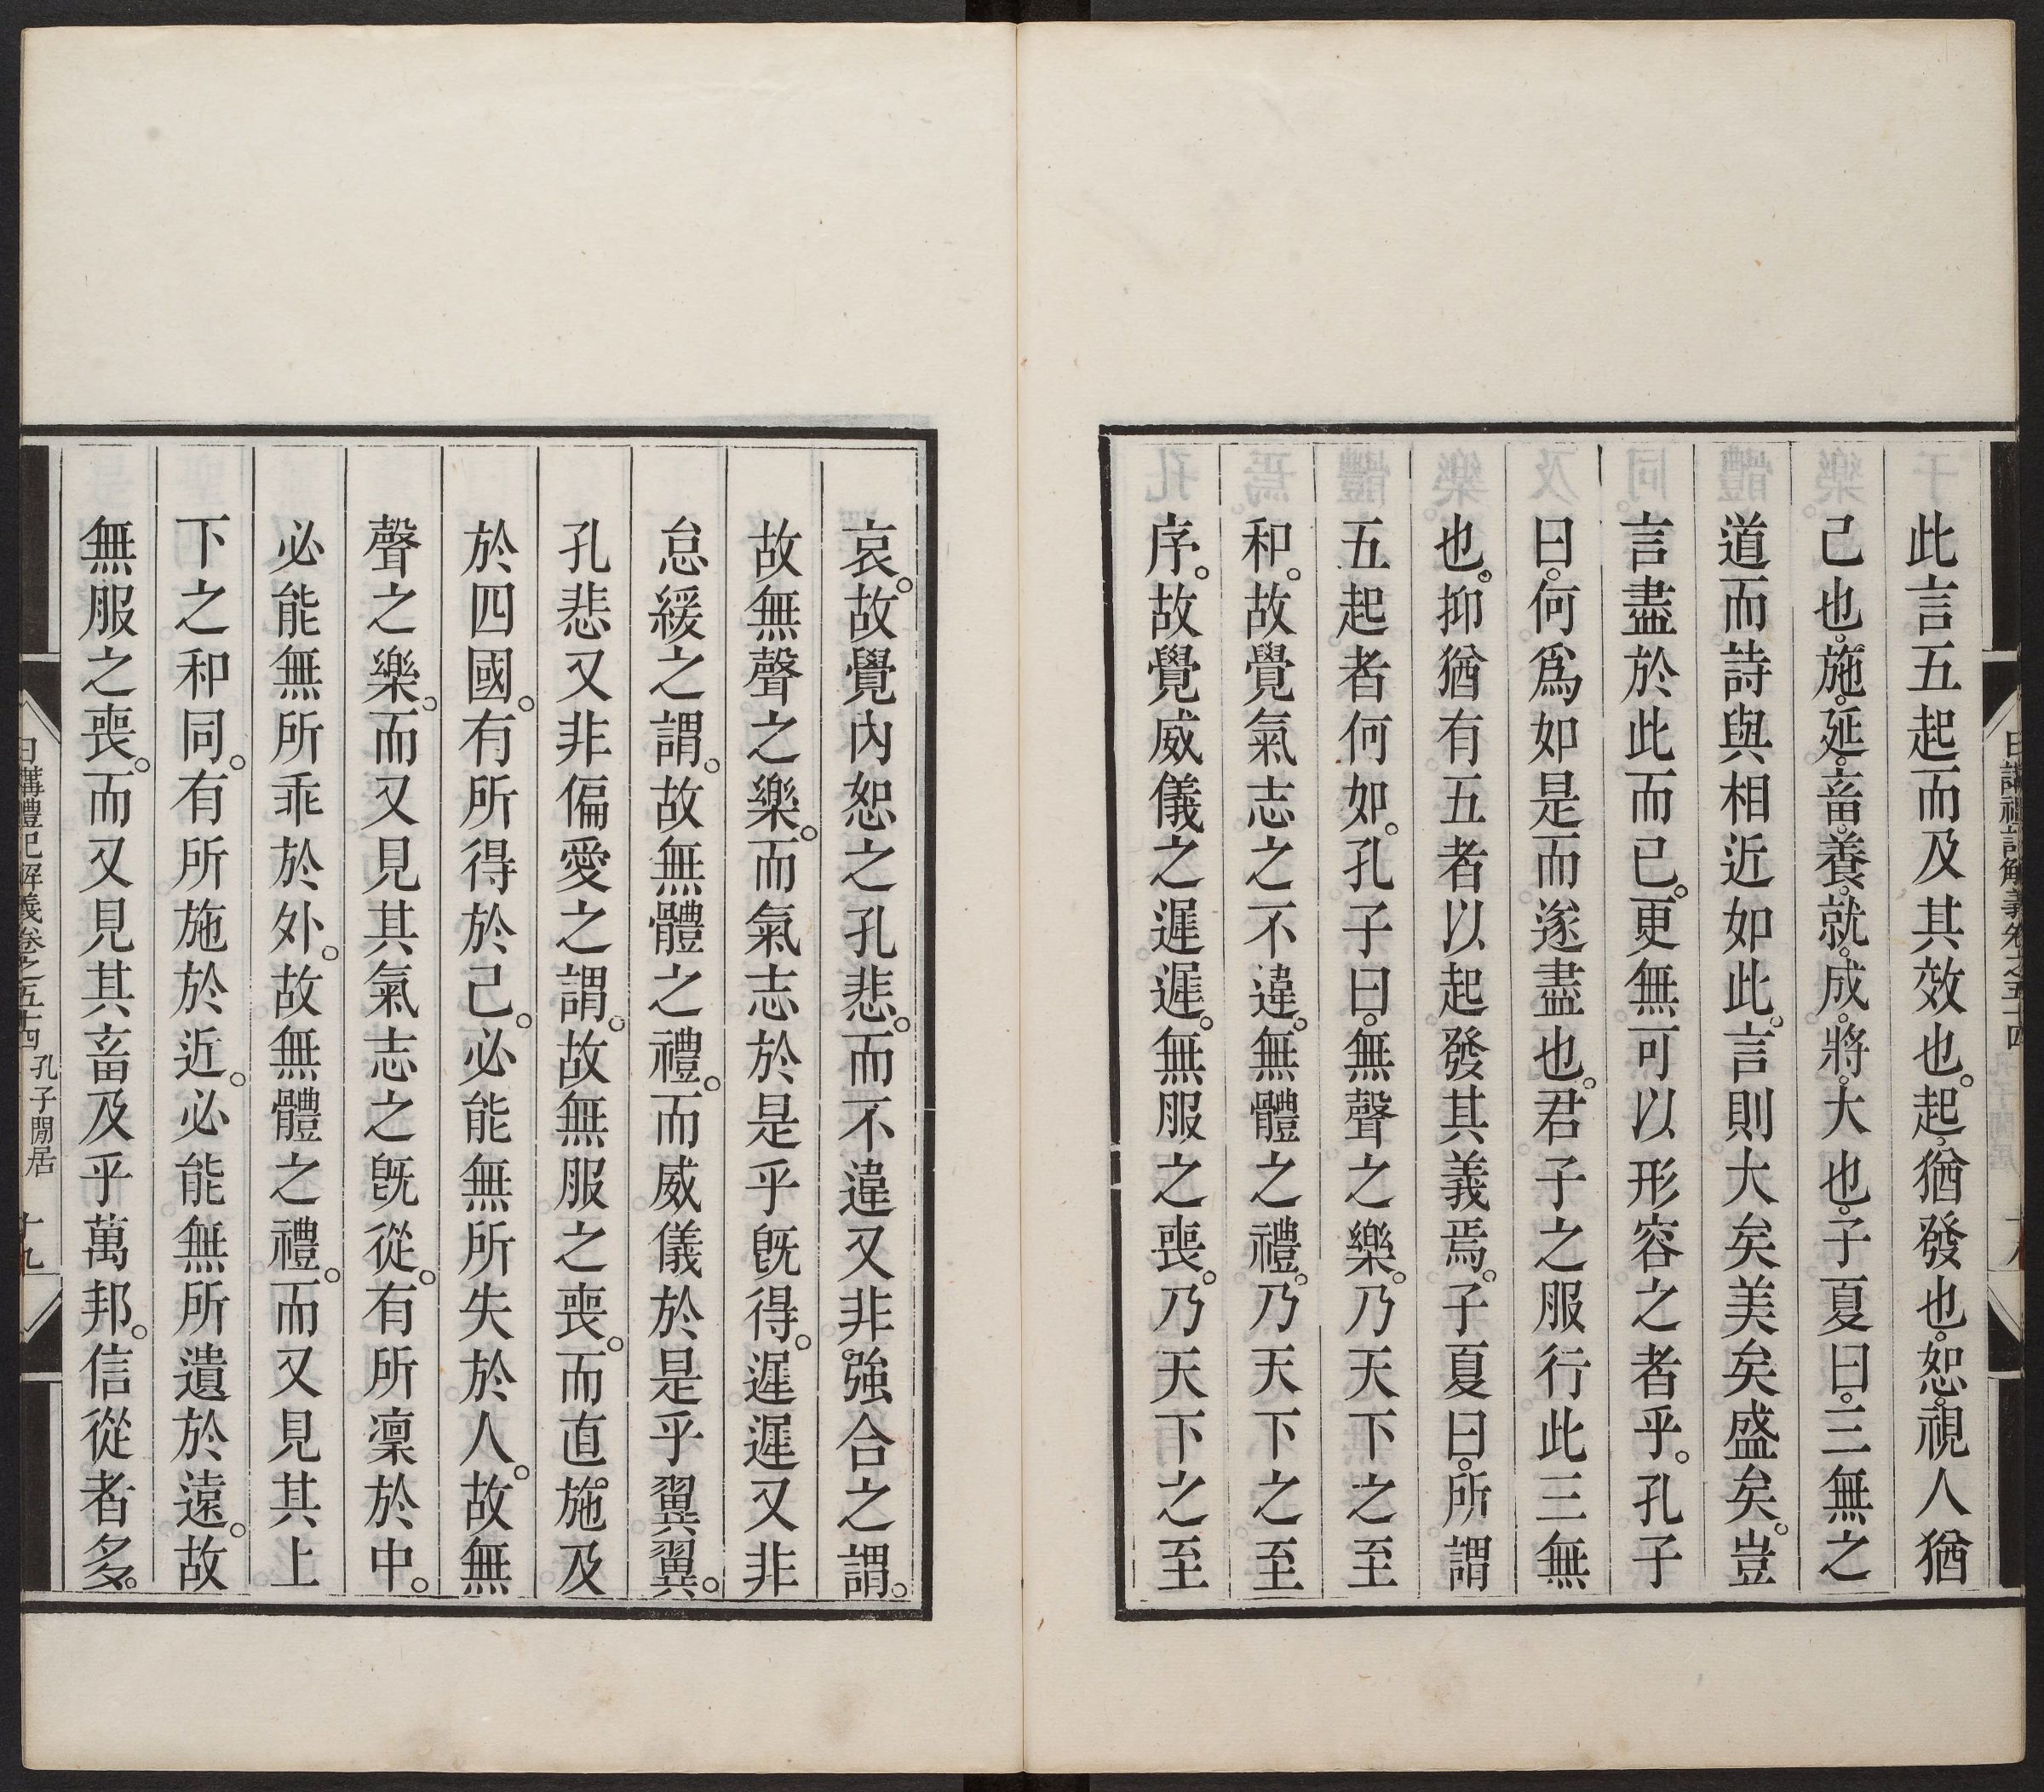 此言五起而及其效也。起。猶發也。恕。視人猶
己也。施。延。畜。養。就。成。將。大也。子夏曰。三無之
道而詩與相近如此。言則大矣美矣盛矣。豈
言盡於此而已。更無可以形容之者乎。孔子
曰。何爲如是而遂盡也。君子之服行此三無
也。抑猶有五者以起發其義焉。子夏曰。所謂
五起者何如。孔子曰。無聲之樂。乃天下之至
和。故覺氣志之不違。無體之禮。乃天下之至
序。故覺威儀之遲遲。無服之喪。乃天下之至
哀。故覺內恕之孔悲。而不違又非。強合之謂。
故無聲之樂。而氣志於是乎旣得。遲遲又非
怠緩之謂。故無體之禮。而威儀於是乎翼翼。
孔悲又非偏愛之謂。故無服之喪。而直施及
於四國。有所得於己。必能無所失於人。故無
聲之樂。而又見其氣志之旣從。有所凜於中。
必能無所乖於外。故無體之禮。而又見其上
下之和同。有所施於近。必能無所遺於遠。故
無服之喪。而又見其畜及乎萬邦。信從者多。
日講禮記解義卷之五十四 孔子閒居 十九